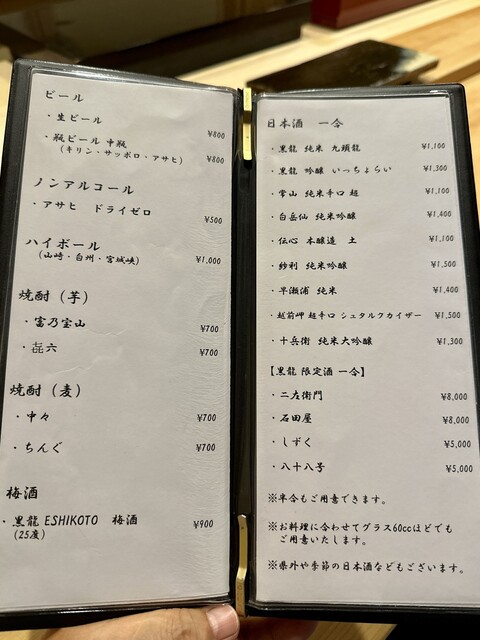 ビール
・生ビール ¥800
・瓶ビール 中瓶 ¥800
(キリン・サッポロ・アサヒ)
ノンアルコール
・アサヒ ドライゼロ ¥500
ハイボール
(山崎・白州・宮城峡) ¥1,000
焼酎(芋)
・富乃宝山 ¥700
・㐂六 ¥700
焼酎(麦)
・中々 ¥700
・ちんぐ ¥700
梅酒
・黒龍 ESHIKOTO 梅酒 ¥900
(25度)
日本酒 一合
・黒龍 純米 九頭龍 ¥1,100
・黒龍 吟醸 いっちょらい ¥1,300
・常山 純米辛口 超 ¥1,100
・白岳仙 純米吟醸 ¥1,400
・伝心 本醸造 土 ¥1,100
・紗利 純米吟醸 ¥1,500
・早瀬浦 純米 ¥1,400
・越前岬 超辛口 シュタルクカイザー ¥1,500
・十兵衛 純米大吟醸 ¥1,300
【黒龍 限定酒 一合】
・二左衛門 ¥8,000
・石田屋 ¥8,000
・しずく ¥5,000
・八十八号 ¥5,000
※半合もご用意できます。
※お料理に合わせてグラス60ccほどでも
ご用意いたします。
※県外や季節の日本酒などもございます。